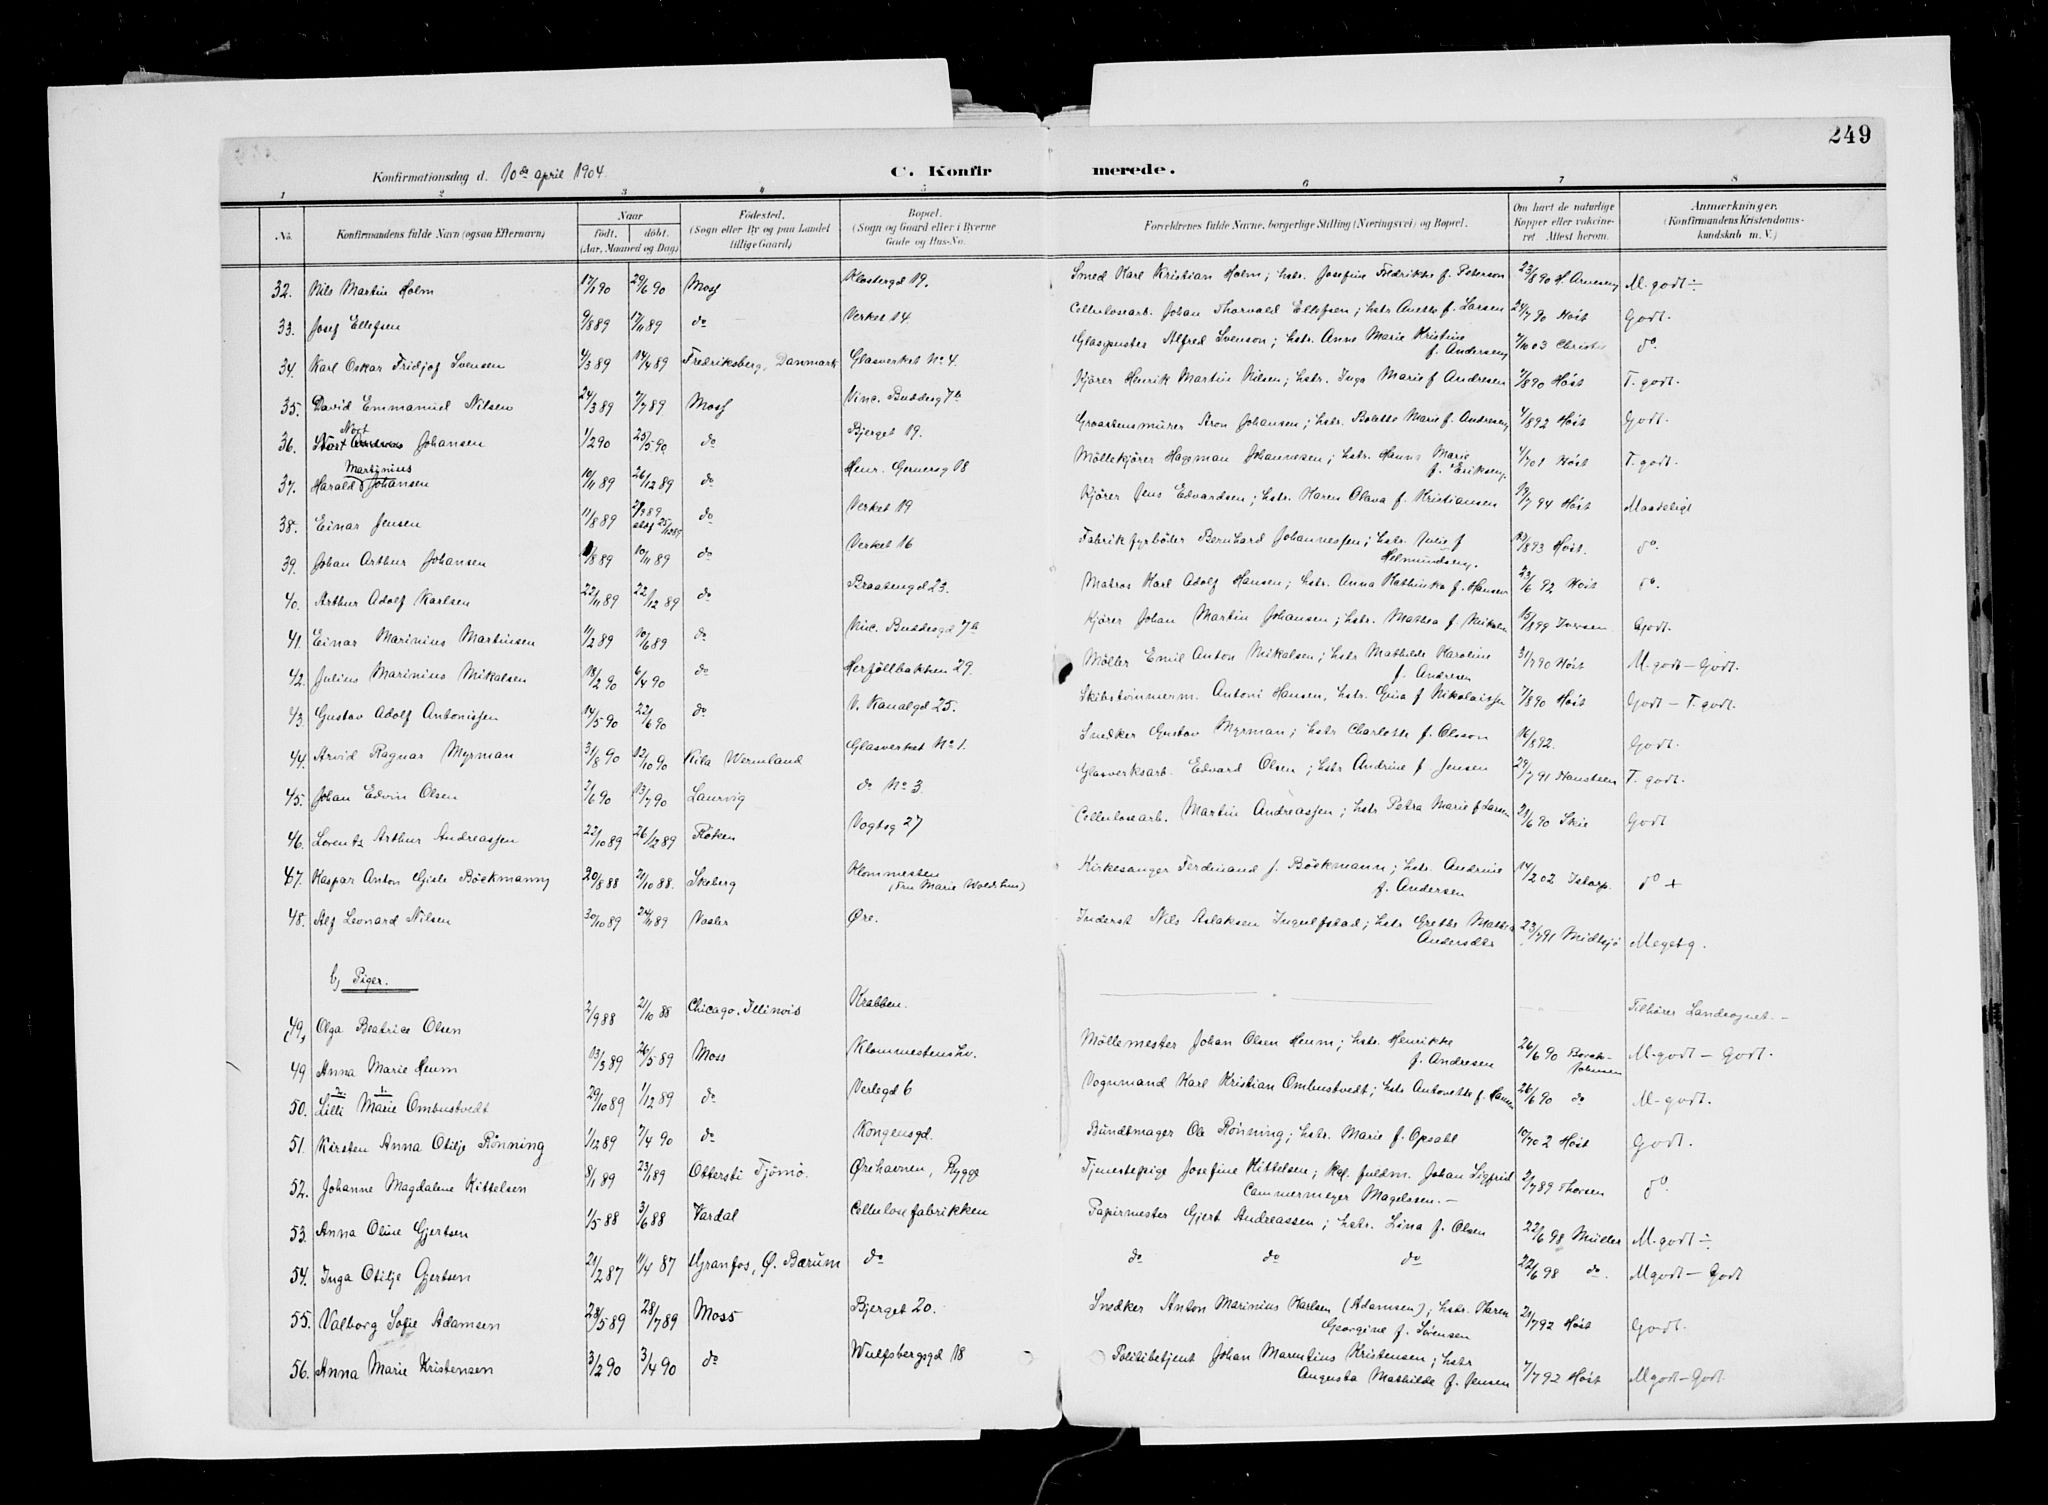 249
Konfirmationsdag d. 10de april 1904.
C. Konfir merede.
1 2 3 4 5 6 7 8
No. Konfirmandens fulde Navn (ogsaa Efternavn) Naar født. døbt. (Aar, Maaned og Dag) Fødested. (Sogn eller By og paa Landet tillige Gaard) Bopæl. (Sogn og Gaard eller i Byerne Gade og Hus-No. Forældrenes fulde Navne, borgerlige Stilling (Næringsvei) og Bopæl. Om havt de naturlige Kopper eller vakcineret Attest herom. Anmærkninger. (Konfirmandens Kristendomskundskab m. V.)
32. Nils Martin Holm 17/1 90 29/6 90 Moss Klostergd 19. Smed Karl Kristian Holm; hstr. Josefine Fredrikke f. Peterson 23/8 90 H. Arnesen M. godt ÷
33. Josef Ellefsen 9/8 89 17/11 89 do Verket 14. Cellulosearb. Johan Thorvald Ellefsen; hstr Anette f. Larsen 24/7 90 Høst Godt.
34. Karl Oskar Fridjof Svensen 4/3 89 14/4 89 Fredriksberg, Danmark Glasverket No. 4. Glaspuster Alfred Svenson; hstr. Anne Marie Kristine f. Andersen 7/10 03 Christie do.
35. David Emmanuel Nilsen 24/3 89 7/7 89 Moss Vinc. Buddesg 7b Kjører Henrik Martin Nilsen; hstr. Inga Marie f Andresen 7/8 90 Høst T. godt.
36. Johansen 1/2 90 25/5 90 do Bjerget 19. Graastensmurer Aron Johansen; hstr. Bolette Marie f. Andresen 4/8 92 Høst Godt.
37. Harald Martinius Johansen 10/11 89 26/12 89 do Henr. Gernersg 18 Møllekjører Hagman Johannesen; hstr. Hanna Marie f. Eriksen. 4/7 01 Høst T. godt.
38. Einar Jensen 11/8 89 2/9 89 do Verket 19 Kjører Jens Edvardsen; hstr. Karen Olava f. Kristiansen 19/7 94 Høst Maadeligt
39. Johan Arthur Johansen /8 89 10/11 89 do Verket 16 Fabrikfyrbøter Bernhard Johannessen; hstr. Julie f Helmundsen. 12/8 93 Høst. do.
40. Arthur Adolf Karlsen 22/11 89 22/12 89 do Braatengd 23. Matros Karl Adolf Hansen; hstr. Anna Kathinka f. Hansen 23/6 92 Høst do.
41. Einar Marinius Martinsen 11/2 89 10/6 89 do Vinc. Buddesgd 7b Kjører Johan Martin Johansen; hstr. Mathea f. 15/8 99 Iversen Godt.
42. Julius Marinius Mikalsen 18/2 90 6/4 90 do Herføllbakken 29. Møller Emil Anton Mikalsen; hstr Mathilde Karoline f. Andresen 31/7 90 Høst M. godt – Godt.
43. Gustav Adolf Antonissen 14/5 90 22/6 90 do V. Kanalgd 25. Skibstømmerm. Antoni Hansen, hstr. Gina f Nikolaissen 7/8 90 Høst Godt – T. godt.
44. Arvid Ragnar Myrman 31/8 90 12/10 90 Kila Wermland Glasverket No. 1. Snedker Gustav Myrman; hstr Charlotte f. Olsson 16/8 92. Godt.
45. Johan Edvin Olsen 2/6 90 13/7 90 Laurvig do No. 3. Glasverksarb. Edvard Olsen; hstr Andrine f. Jensen 29/7 91 Hansteen T. godt.
46. Lorentz Arthur Andreassen 22/10 89 26/12 89 Røken Vogtsg 27 Cellulosearb. Martin Andreassen; hstr Petra Marie f Larsen 23/6 90 Skie Godt
47. Kaspar Anton Gisle Böckmann 20/8 88 21/10 88. Skeberg Klommesten (Fru Marie Woldshus) Kirkesanger Ferdinand J. Böckmann; hstr. Andrine f. Andersen 14/2 02 Istorp. do +
48. Alf Leonard Nilsen 30/10 89 24/11 89 Vaaler Øre. Inderst Nils Aslaksen Ingulfstad; hstr Grethe Mathea Andersdtr 23/7 91 Midtsjø Meget g.
b, Piger.
(49) Olga Beatrice Olsen 2/9 88 21/10 88 Chicago, Illinois Krabben. Tilhører Landsognet. –
49 Anna Marie Heum 13/3 89 26/5 89 Moss Klommestenshv. Møllemester Johan Olsen Heum; hstr. Henrikke f. Andresen 26/6 90 Borck-Johnsen M. godt – Godt.
50. Lilli Marie Ombustvedt 29/10 89 1/12 89 do Verlegd 6 Vognmand Karl Kristian Ombustvedt; hstr Antonette f. Hansen 26/6 90 do M. godt.
51. Kirsten Anna Otilje Rønning 1/12 89 7/4 90 do Kongensgd. Bundtmager Ole Rønning; hstr. Marie f. Opsahl 10/7 02 Høst Godt.
52. Johanne Magdalene Kittelsen 8/1 89 23/1 89 Ottersti Tjømø. Ørehavnen, Rygge Tjenestepige Josefine Kittelsen; fuldm. Johan Sigfrid Cammermeyer Magelssen. – 2/7 89 Thorsen do.
53. Anna Oline Gjertsen 1/5 88 3/6 88 Vardal Cellulosefabrikken Papirmester Gjert Andreassen; hstr. Lina f. Olsen 22/6 98 Müller M. godt ÷
54. Inga Otilje Gjertsen 21/2 87 11/4 87 Granfos, Ø. Bærum do do do do 22/6 98 do. M godt – Godt
55. Valborg Sofie Adamsen 28/5 89 28/7 89 Moss Bjerget 20. Snedker Anton Marinius Karlsen (Adamsen); hstr. Karen Georgine f. Sørensen 21/7 92 Høst Godt.
56. Anna Marie Kristensen 3/2 90 3/4 90 do Wulfsbergsgd 18 Politibetjent Johan Marentius Kristensen; hstr Augusta Mathilde f. Jensen 7/7 92 Høst M godt – Godt.